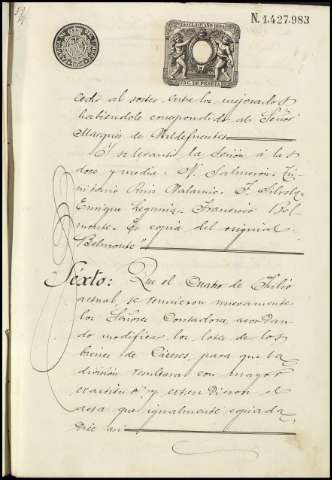 N. 1.427.983
cede al sorteo entre los mejorados
habiendole correspondido al Señor
Marqués de Valdefuentes
Y se levantó la Sesión á las
doce y media. N. Salmerón
Ruiz F. Silvela
Enrique Francisco Bel-
monte. Es copia del original
Belmonte
Séxto: Que el Cuatro de Julio
actual, se reunieron nuevamente
los Señores Contadores, acordan
do modificar los lotes de los
bienes de Cáceres, para que la
división resultara con mayor
exactitud y estendieron el
acta que igualmente copiada
dice así